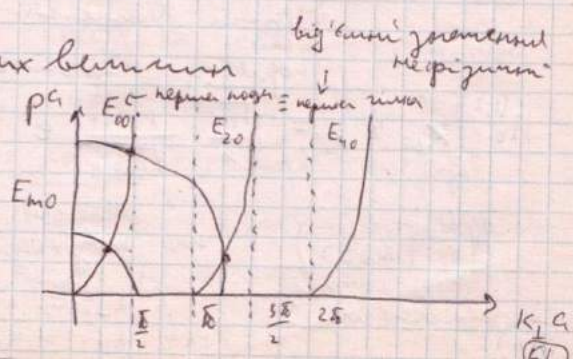 від'ємні значення
нефізичні
их величин
перша мода ≡ перша гілка
pa E₀₀ E₂₀ E₄₀
Eₘ₀
π/2 π 3π/2 2π
K₁a